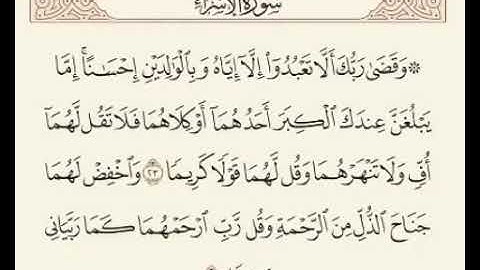 سورة الإسراء
۞ وَقَضَىٰ رَبُّكَ أَلَّا تَعْبُدُوٓا۟ إِلَّآ إِيَّاهُ وَبِٱلْوَٰلِدَيْنِ إِحْسَـٰنًا ۚ إِمَّا
يَبْلُغَنَّ عِندَكَ ٱلْكِبَرَ أَحَدُهُمَآ أَوْ كِلَاهُمَا فَلَا تَقُل لَّهُمَآ
أُفٍّ وَلَا تَنْهَرْهُمَا وَقُل لَّهُمَا قَوْلًا كَرِيمًا ٢٣ وَٱخْفِضْ لَهُمَا
جَنَاحَ ٱلذُّلِّ مِنَ ٱلرَّحْمَةِ وَقُل رَّبِّ ٱرْحَمْهُمَا كَمَا رَبَّيَانِى